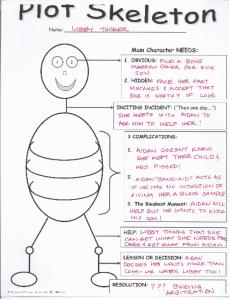 Plot Skeleton
Name: LIBBY TUCKER
Main Character NEEDS:
1. OBVIOUS: FIND A BONE
MARROW DONOR FOR HER
SON
2. HIDDEN: FACE HER PAST
MISTAKES & ACCEPT THAT
SHE IS WORTH OF LOVE
INCITING INCIDENT: ("Then one day...")
SHE MEETS WITH AIDAN TO
ASK HIM TO HELP HER!
3 COMPLICATIONS:
1. AIDAN DOESN'T KNEW
SHE KEPT THEIR CHILD &
HE'S PISSED!
2. AIDAN "BAND-AID" ACTS AS
IF HE HAS NO INTENTION OF
GIVING HER A BLOOD SAMPLE
3. The Bleakest Moment: AIDAN WILL
HELP BUT HE WANTS TO KNOW
HIS SON!
HELP: LIBBY THINKS THAT SHE
CAN GET WHAT SHE NEEDS FOR
& GET AWAY FROM AIDAN
LESSON OR DECISION: AIDAN
DECIDES HE WANTS MORE THAN
HE WANTS LIBBY TOO!
RESOLUTION: ??? BINDING
ARBITRATION